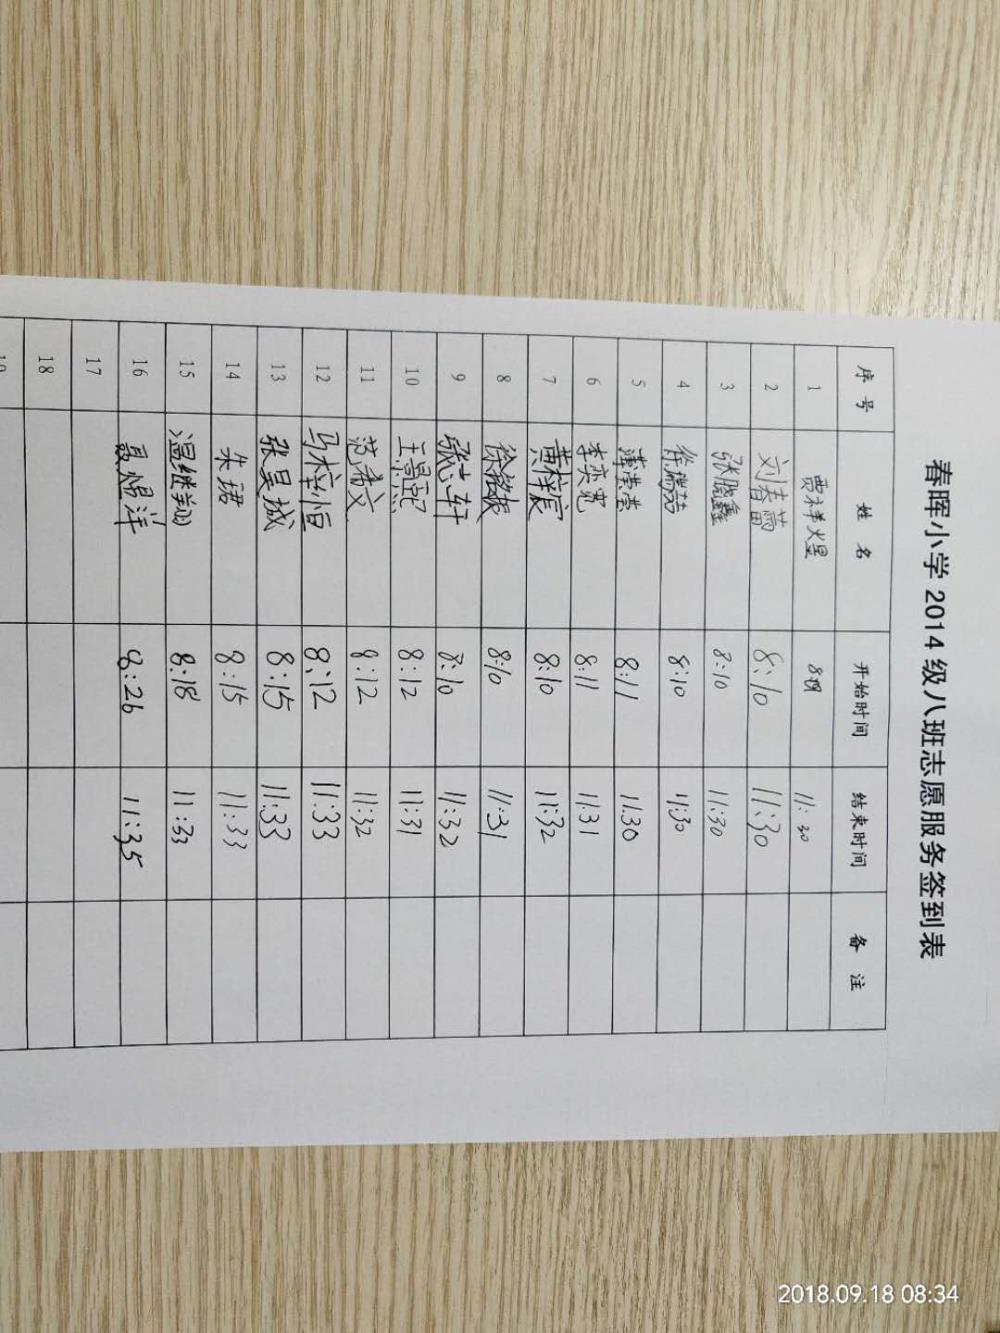 春晖小学 2014 级八班志愿服务签到表
序号 姓名 开始时间 结束时间 备注
1 贾祥煜 11:30
2 刘春蕾 8:10 11:30
3 张晓鑫 8:10 11:30
4 徐瑞喆 8:10 11:30
5 莹莹 8:11 11:30
6 李奕宽 8:11 11:31
7 黄梓宸 8:10 11:32
8 徐铭振 8:10 11:31
9 张志轩 8:10 11:32
10 王景 8:12 11:31
11 范希文 8:12 11:32
12 马梓恒 8:12 11:33
13 张昊城 8:15 11:33
14 朱珺 8:15 11:33
15 温继翔 8:18 11:33
16 聂煜洋 8:26 11:35
17
18
19
2018.09.18 08:34